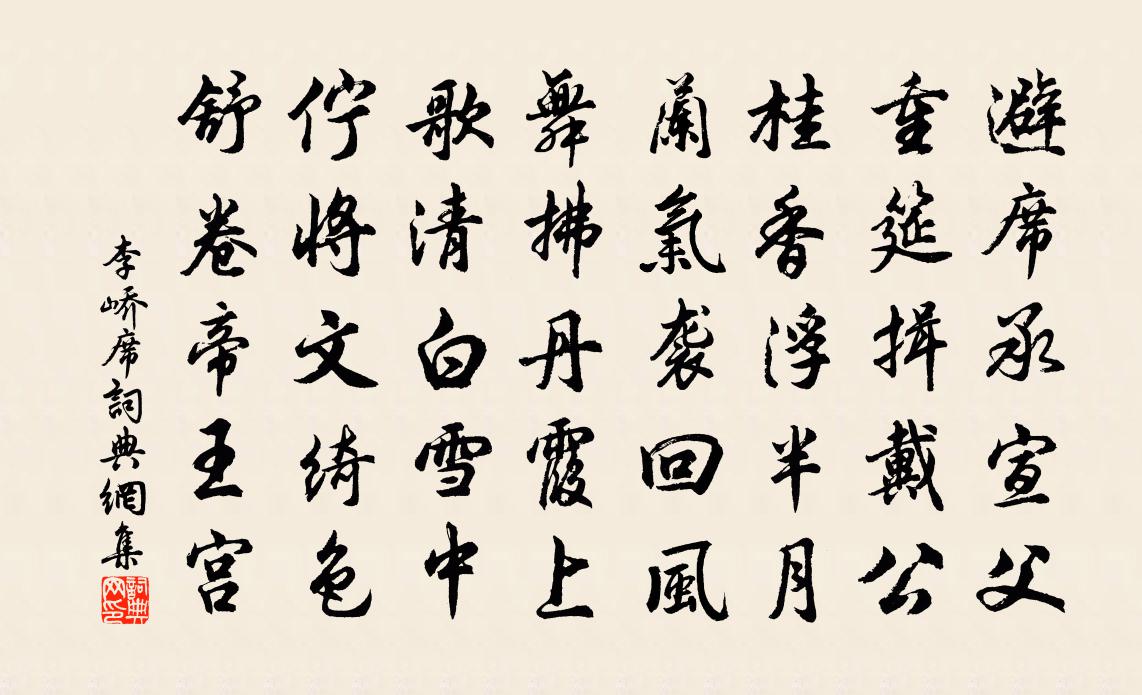 避席承宣父
重筵揖戴公
桂香浮半月
蘭氣襲回風
舞拂丹霞上
歌清白雪中
佇將文綺色
舒卷帝王宮
李嶠席詞典網集
詞典
网印